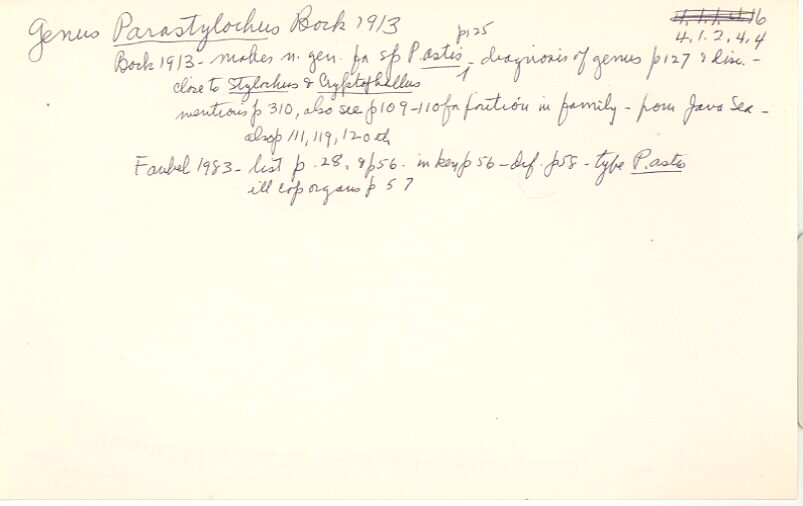 Genus Parastylochus Bock 1913
4.1.1.4.16
4.1.2.4.4
p125
Bock 1913 - makes n. gen. for sp P. astis - diagnosis of genus p127 & disc. -
close to Stylochus & Cryptophallus
mentions p 310, also see p109-110 for position in family - from Java Sea -
also p 111, 119, 120 oth
Faubel 1983 - list p. 28, & p56. in key p56 - def. p58 - type P. astis
ill cop organs p 57